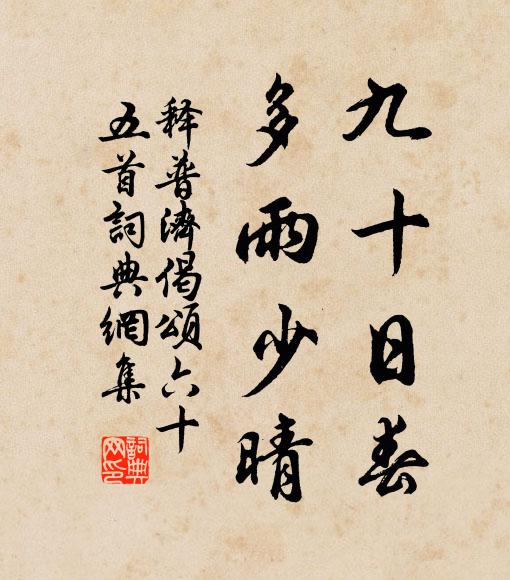 九十日春
多雨少晴
释普濟偈頌六十
五首詞典網集
詞典网印